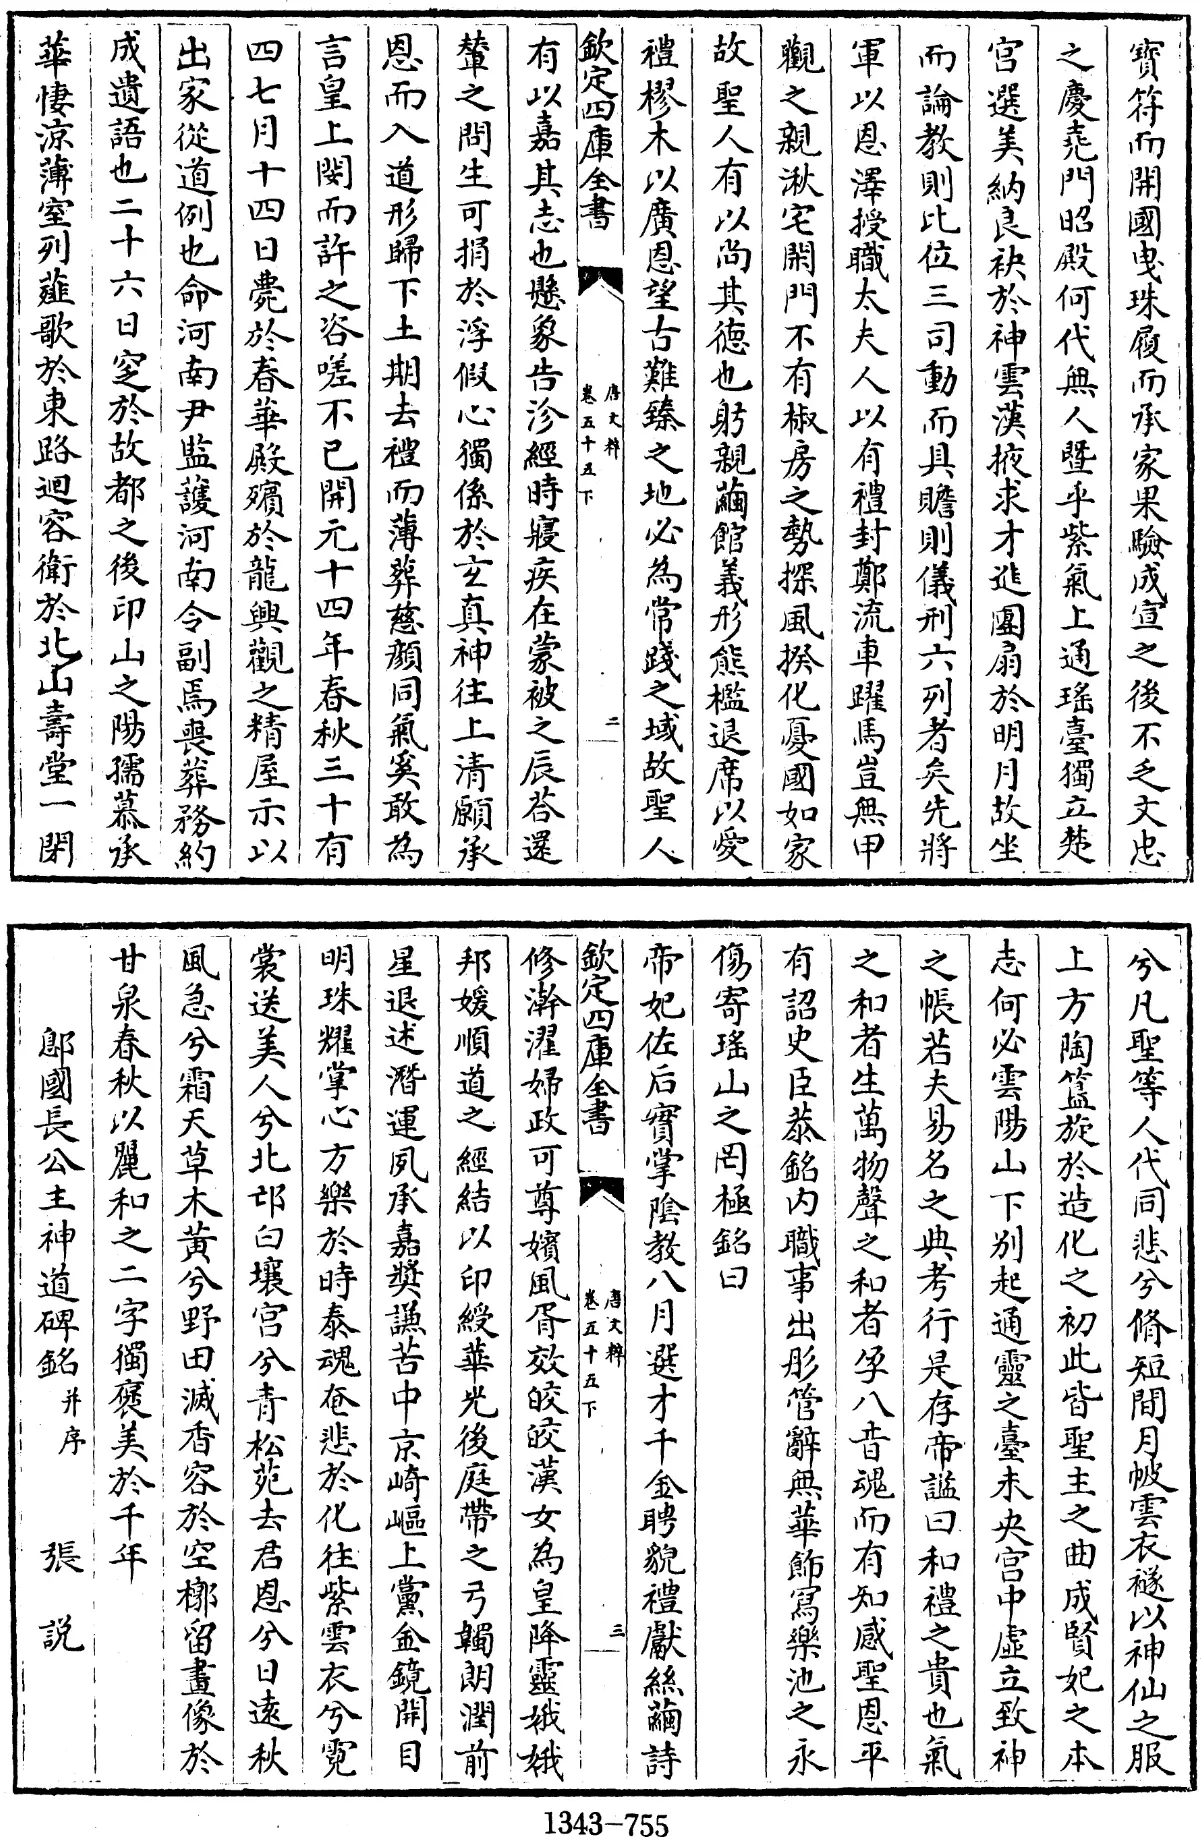 寳符而開國曵珠履而承家果驗成宣之後不乏文忠
之慶堯門昭殿何代無人暨乎紫氣上通瑤臺獨立楚
宫選美納良袂於神雲漢掖求才進團扇於明月故坐
而論教則比位三司動而具瞻則儀刑六列者矣先將
軍以恩澤授職太夫人以有禮封鄭流車躍馬豈無甲
觀之親湫宅閑門不有椒房之勢探風揆化憂國如家
故聖人有以尚其徳也躬親繭館義形熊檻退席以愛
禮樛木以廣恩望古難臻之地必為常踐之域故聖人
欽定四庫全書
唐文粹
卷五十五下
二
有以嘉其志也懸象告沴經時寢疾在蒙被之辰荅還
輦之問生可捐於浮假心獨係於玄真神往上清願承
恩而入道形歸下土期去禮而薄葬慈顔同氣奚敢為
言皇上閔而許之咨嗟不已開元十四年春秋三十有
四七月十四日薨於春華殿殯於龍興觀之精屋示以
出家從道例也命河南尹監護河南令副焉喪葬務約
成遺語也二十六日窆於故都之後印山之陽孺慕承
華悽涼薄室列薤歌於東路迴容衛於北山壽堂一閉
兮凡聖等人代同悲兮脩短間月帔雲衣襚以神仙之服
上方陶簋旋於造化之初此皆聖主之曲成賢妃之本
志何必雲陽山下别起通靈之臺未央宫中虛立致神
之帳若夫易名之典考行是存帝謚曰和禮之貴也氣
之和者生萬物聲之和者孚八音魂而有知感聖恩平
有詔史臣恭銘内職事出彤管辭無華飾寫樂池之永
傷寄瑤山之罔極銘曰
帝妃佐后實掌陰教八月選才千金聘貌禮獻絲繭詩
欽定四庫全書
唐文粹
卷五十五下
三
修澣濯婦政可尊嬪風胥效皎皎漢女為皇降靈娥娥
邦媛順道之經結以印綬華光後庭帶之弓韣朗潤前
星退述潛運夙承嘉奬謙苦中京崎嶇上黨金鏡開目
明珠耀掌心方樂於時泰魂奄悲於化往紫雲衣兮霓
裳送美人兮北邙白壤宫兮青松苑去君恩兮日遠秋
風急兮霜天草木黄兮野田滅香容於空槨留畫像於
甘泉春秋以麗和之二字獨褒美於千年
鄎國長公主神道碑銘并序 張説
1343-755